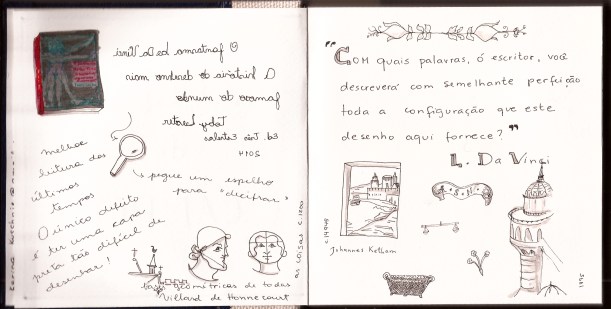 O fantasma de Da Vinci
A história do desenho mais
famoso do mundo
Toby Lester
ed. Três Estrelas
2014
melhor
leitura dos
últimos
tempos
O único defeito
é ter uma capa
preta tão difícil de
desenhar!
pegue um espelho
para "decifrar"
bases geométricas de todas
as coisas
Villard de Honnecourt
"COM quais palavras, ó escritor, você
descreverá com semelhante perfeição
toda a configuração que este
desenho aqui fornece?"
L. Da Vinci
Johannes Ketham